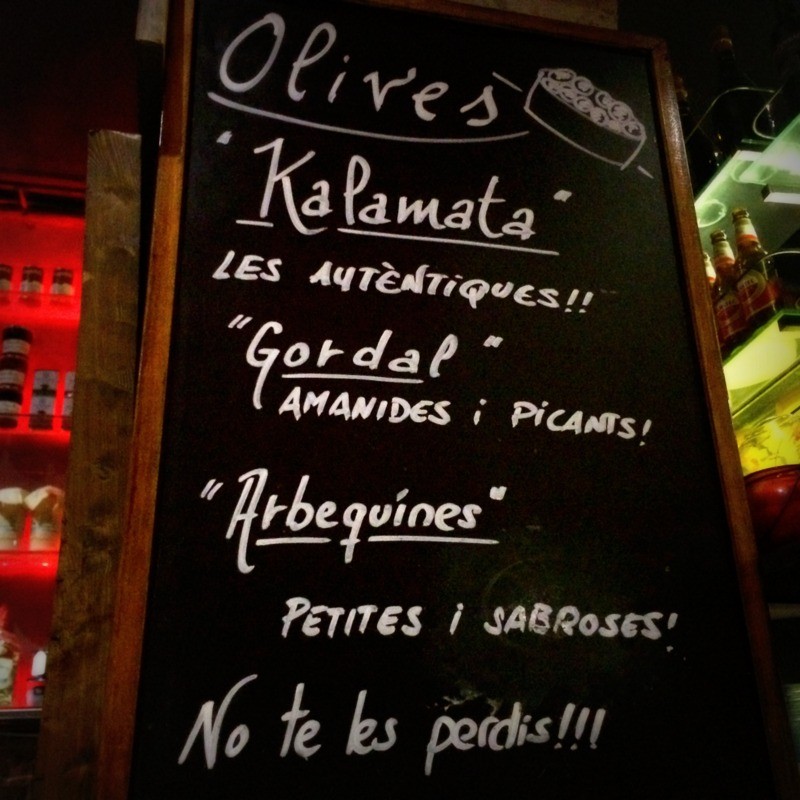 Olives
"Kalamata"
LES AUTÈNTiQUES!!
"Gordal"
AMANIDES i PiCANTS!
"Arbequines"
PETITES i SABROSES!
No te les perdis!!!